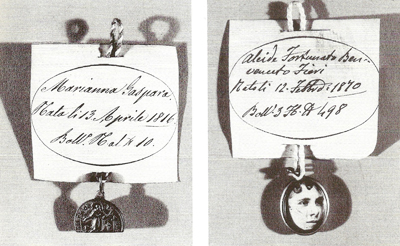 Marianna Gaspara.
Nata li 13. Aprile 1816
Boll. Nal. N 10.
Aleide Fortunato Ben-
venuto Fiori
Nato li 12.
1870
Boll.
498